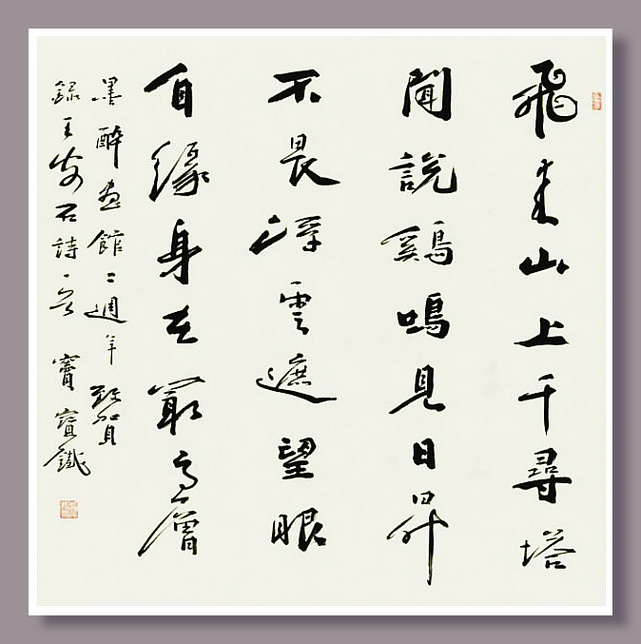 飛来山上千尋塔
聞說鷄鳴見日昇
不畏浮雲遮望眼
自緣身在最高層
墨醉畫館二週年致賀
録王安石詩一首 竇寶鐵